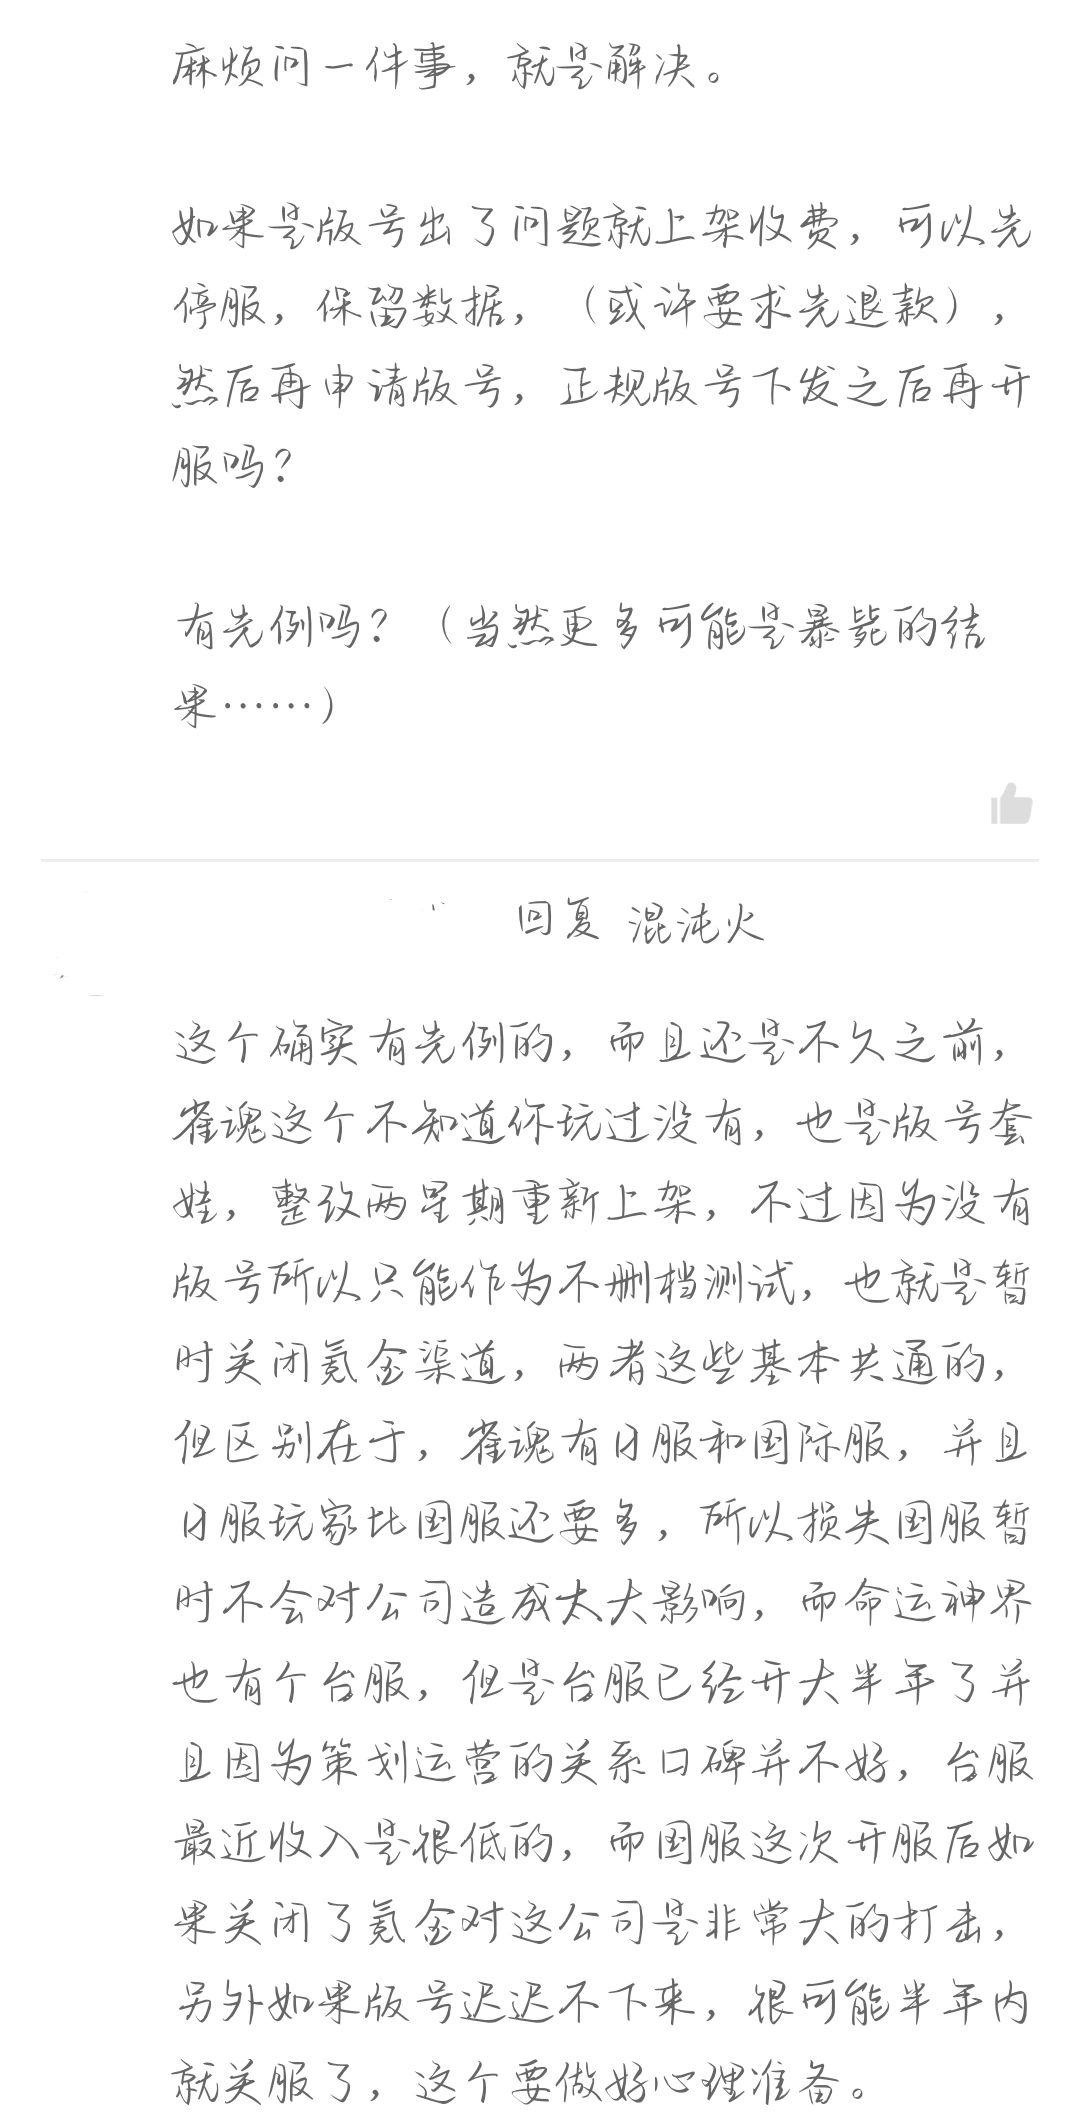 麻烦问一件事，就是解决。
如果是版号出了问题就上架收费，可以先
停服，保留数据，（或许要求先退款），
然后再申请版号，正规版号下发之后再开
服吗？
有先例吗？（当然更多可能是暴毙的结
果……）
回复 混沌火
这个确实有先例的，而且还是不久之前，
雀魂这个不知道你玩过没有，也是版号套
娃，整改两星期重新上架，不过因为没有
版号所以只能作为不删档测试，也就是暂
时关闭氪金渠道，两者这些基本共通的，
但区别在于，雀魂有日服和国际服，并且
日服玩家比国服还要多，所以损失国服暂
时不会对公司造成太大影响，而命运神界
也有个台服，但是台服已经开大半年了并
且因为策划运营的关系口碑并不好，台服
最近收入是很低的，而国服这次开服后如
果关闭了氪金对这公司是非常大的打击，
另外如果版号迟迟不下来，很可能半年内
就关服了，这个要做好心理准备。